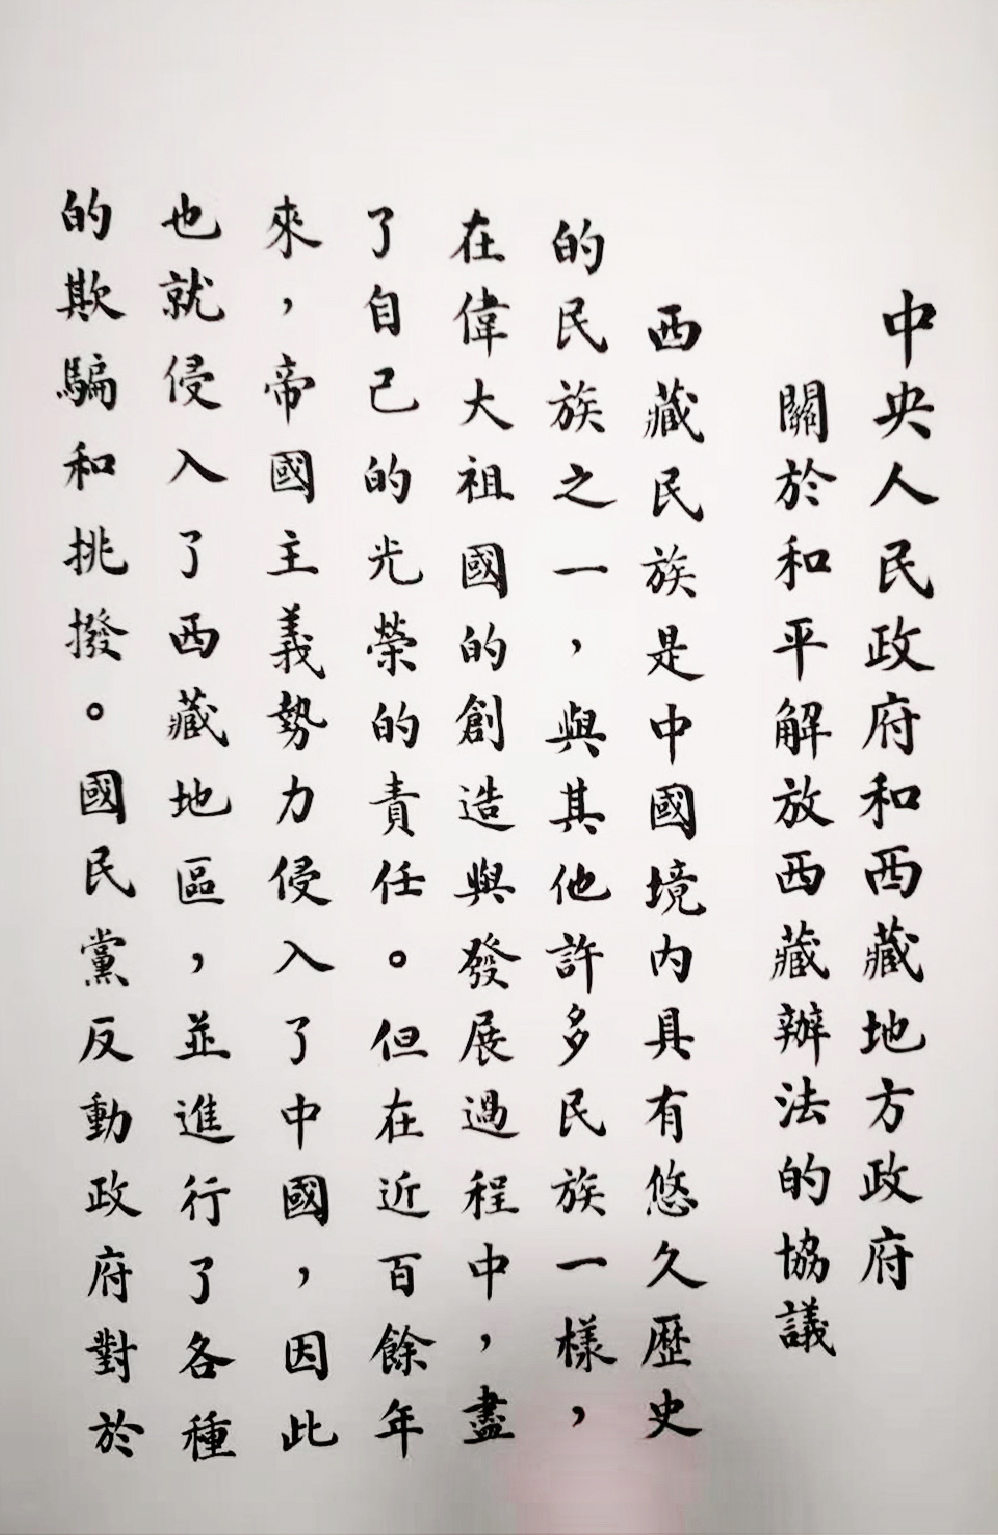 中央人民政府和西藏地方政府
關於和平解放西藏辦法的協議
西藏民族是中國境内具有悠久歷史
的民族之一，與其他許多民族一樣，
在偉大祖國的創造與發展過程中，盡
了自己的光榮的責任。但在近百餘年
來，帝國主義勢力侵入了中國，因此
也就侵入了西藏地區，並進行了各種
的欺騙和挑撥。國民黨反動政府對於